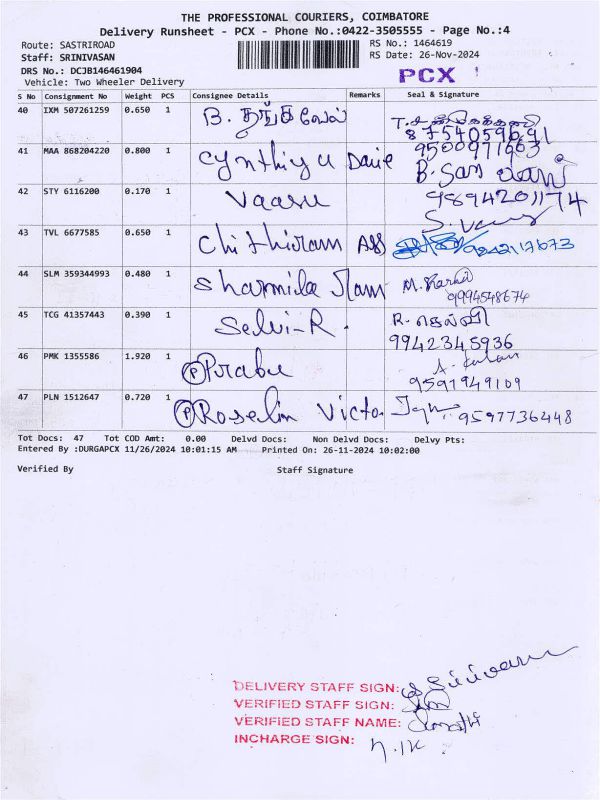 THE PROFESSIONAL COURIERS, COIMBATORE
Delivery Runsheet - PCX - Phone No.:0422-3505555 - Page No.:4
Route: SASTRIROAD RS No.: 1464619
Staff: SRINIVASAN RS Date: 26-Nov-2024
DRS No.: DCJB146461904
Vehicle: Two Wheeler Delivery
PCX
S No Consignment No Weight PCS Consignee Details Remarks Seal & Signature
40 IXM 507261259 0.650 1 B. தங்கவேல்
8754059691
41 MAA 868204220 0.800 1 Cynthiya
9500971663
42 STY 6116200 0.170 1 Vaasu 9894201174
43 TVL 6677585 0.650 1 Chithiram Ass
44 SLM 359344993 0.480 1 Sharmila Ram
9994548674
45 TCG 41357443 0.390 1 Selvi-R. R. செல்வி
9942345936
46 PMK 1355586 1.920 1 P Prabu
9597949109
47 PLN 1512647 0.720 1 P Roselin Victo 9597736448
Tot Docs: 47 Tot COD Amt: 0.00 Delvd Docs: Non Delvd Docs: Delvy Pts:
Entered By :DURGAPCX 11/26/2024 10:01:15 AM Printed On: 26-11-2024 10:02:00
Verified By Staff Signature
DELIVERY STAFF SIGN:
VERIFIED STAFF SIGN:
VERIFIED STAFF NAME:
INCHARGE SIGN: